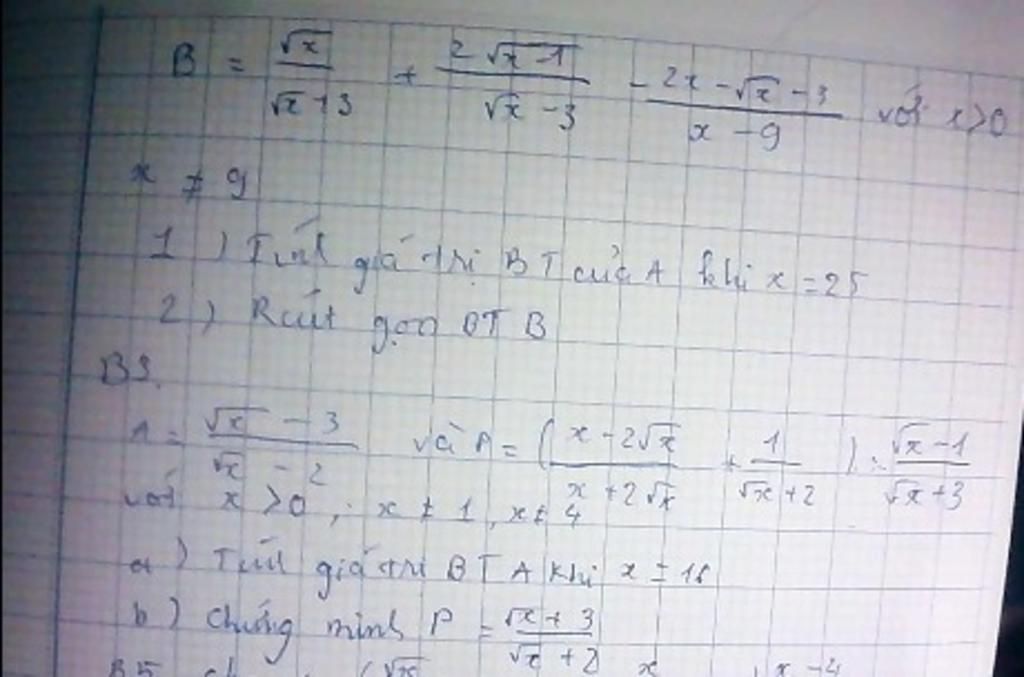 B = √x / (√x + 3) + (2√x - 1) / (√x - 3) - (2x - √x - 3) / (x - 9) với x > 0
x ≠ 9
1) Tính giá trị BT của A khi x = 25
2) Rút gọn BT B
B3.
A = (√x - 3) / (√x - 2) và P = ((x - 2√x) / (x + 2√x) + 1 / (√x + 2)) : (√x - 1) / (√x + 3)
với x > 0, x ≠ 1, x ≠ 4
a) Tính giá trị BT A khi x = 16
b) Chứng minh P = (√x + 3) / (√x + 2)